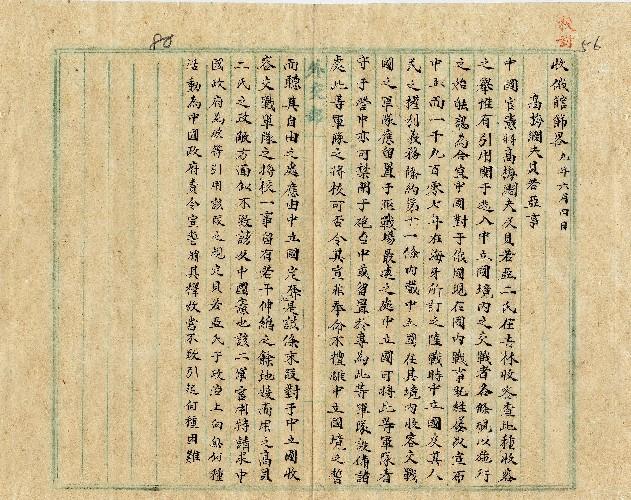 收俄館節畧 九年六月四日
高梅闊夫貝若亞事
中國官憲將高梅闊夫及貝若亞二氏在吉林收容查此種收容
之舉惟有引用關于避入中立國境內之交戰者各條規以施行
之始能認為合宜中國對于俄國現在國內戰爭既經屡次宣布
中立而一千九百零七年在海牙所訂之陸戰時中立國及其人
民之權利義務陸約第十一條內載中立國在其境內收容交戰
國之軍隊應留置于距戰場最遠之處中立國可將此等軍隊看
守于營中亦可禁閉于砲台中或留置於專為此等軍隊設備諸
處此等軍隊之將校可否令其宣誓非奉命不擅離中立國境之誓
而聽其自由之處應由中立國定奪是該條末段對于中立國收
容交戰軍隊之將校一事留有若干伸縮之餘地按高用之高貝
二氏之政敵方面似不致該及中國政府也該二軍官特請求中
國政府為彼等引用該段之規定貝若亞氏于政治上向無何種
活動為中國政府責令宣誓將其釋放當不致引起何種困難
80
56